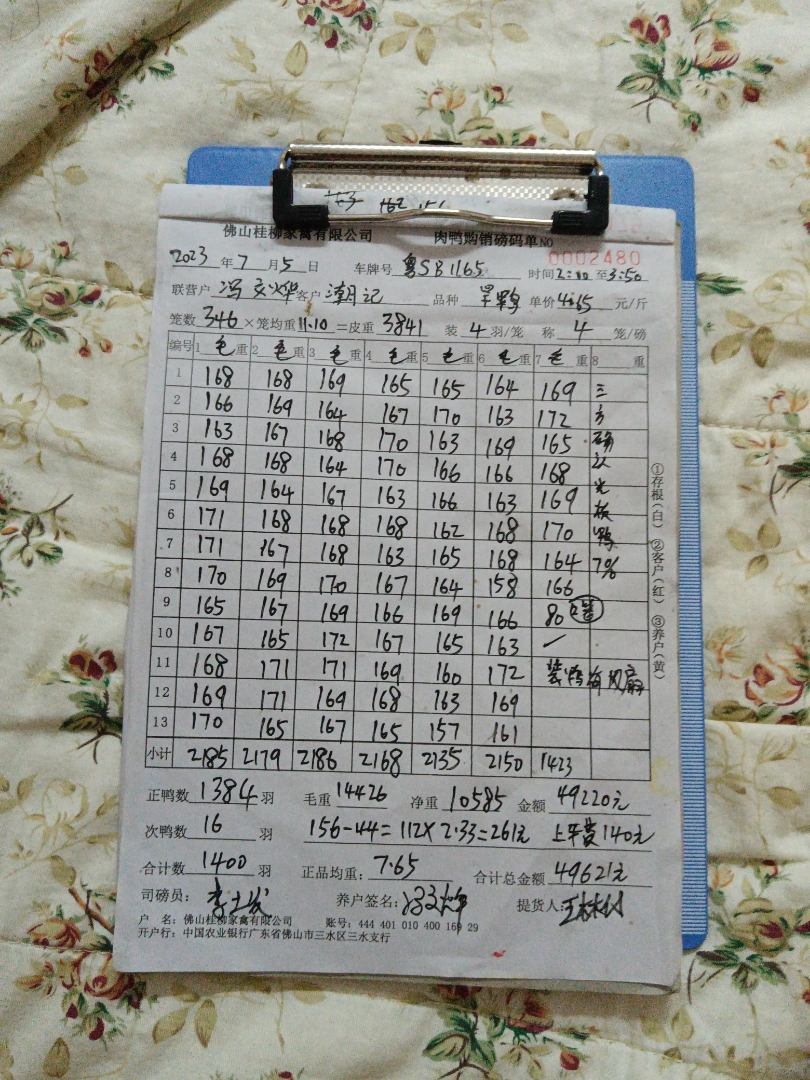 162 156
佛山桂柳家禽有限公司 肉鸭购销磅码单 NO 0002480
2023 年 7 月 5 日 车牌号 粤SB1165 时间 2:10 至 3:50
联营户 冯文烨 客户 潮记 品种 旱鸭 单价 4.65 元/斤
笼数 346 × 笼均重 11.10 = 皮重 3841 装 4 羽/笼 称 4 笼/磅
编号 1 毛 重 2 毛 重 3 毛 重 4 毛 重 5 毛 重 6 毛 重 7 毛 重 8 重
1 168 168 169 165 165 164 169 三
2 166 169 164 167 170 163 172 方
3 163 167 168 170 163 169 165 确
4 168 168 164 170 166 166 168 认
5 169 164 167 163 166 163 169 光
6 171 168 168 168 162 168 170 板 鸭
7 171 167 168 163 165 168 164 7%
8 170 169 170 167 164 158 166
9 165 167 169 166 169 166 80
10 167 165 172 167 165 163 /
11 168 171 171 169 160 172 装鸭有风扇
12 169 171 169 168 163 169
13 170 165 167 165 157 161
小计 2185 2179 2186 2168 2135 2150 1423
正鸭数 1384 羽 毛重 14426 净重 10585 金额 49220元
次鸭数 16 羽 156-44=112×2.33=261元 上车费140元
合计数 1400 羽 正品均重: 7.65 合计总金额 49621元
司磅员: 养户签名: 冯文烨 提货人:
户 名: 佛山桂柳家禽有限公司 账号: 444 401 010 400 169 29
开户行: 中国农业银行广东省佛山市三水区三水支行
①存根(白) ②客户(红) ③养户(黄)